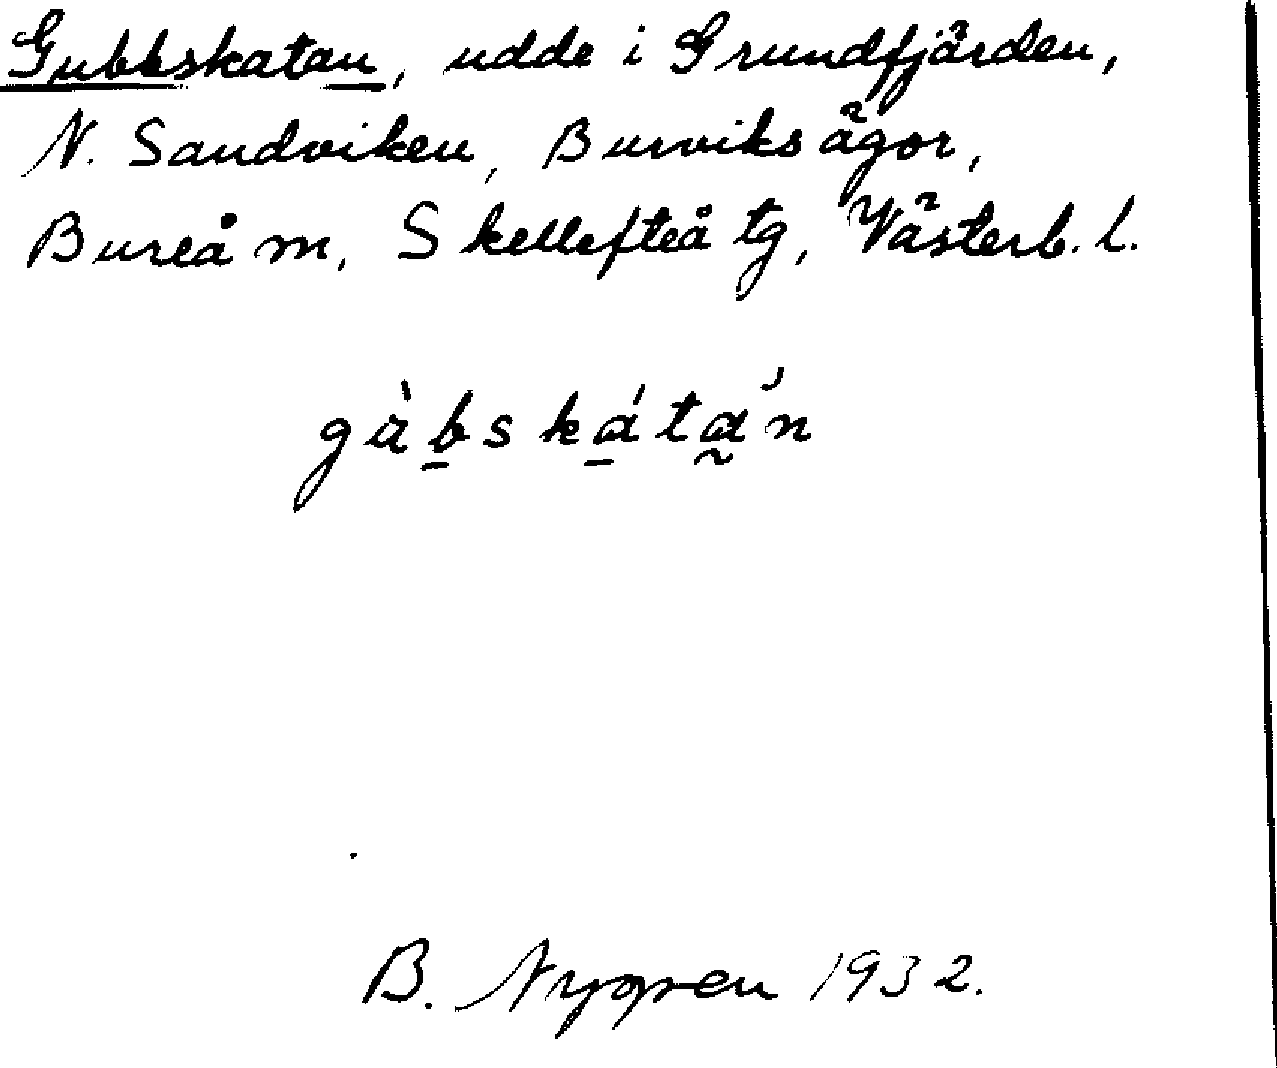 Gubbskatan, udde i Grundfjärden,
N. Sandviken, Burviks ägor,
Bureå m, Skellefteå tg, Västerb. l.
gàb̲sk̲át̰án
B. Nygren 1932.